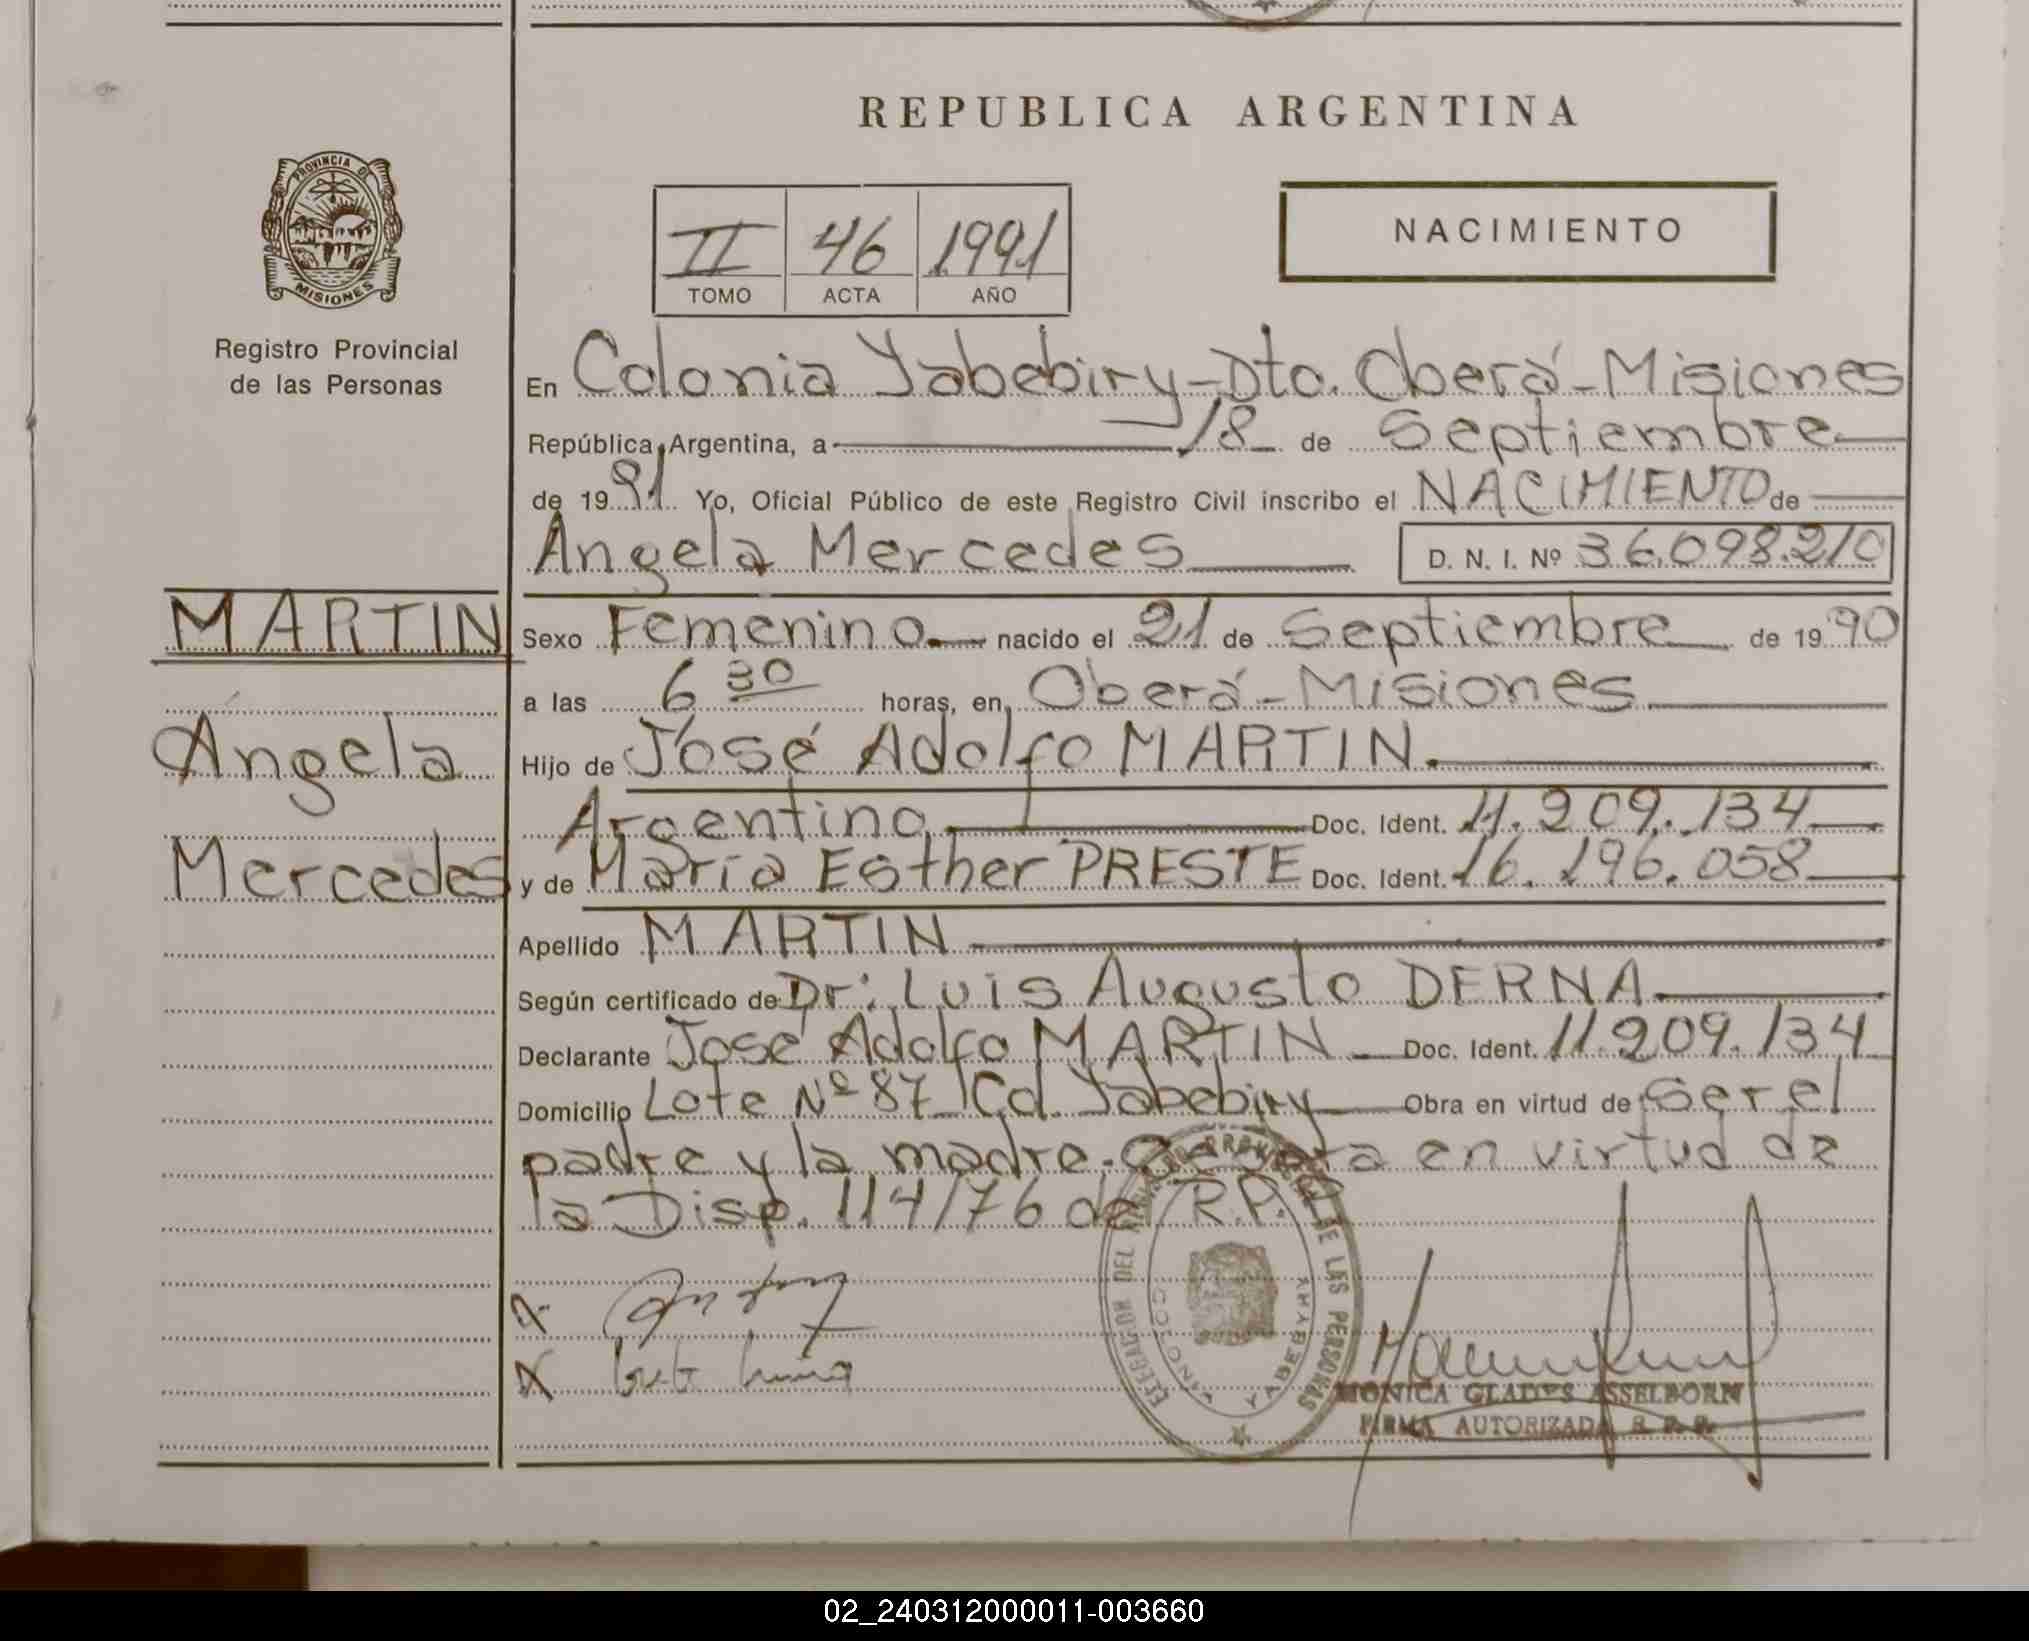 REPUBLICA ARGENTINA
PROVINCIA DE
MISIONES
Registro Provincial
de las Personas
II 46 1991
TOMO ACTA AÑO
NACIMIENTO
En Colonia Yabebiry - Dto. Oberá - Misiones
República Argentina, a 18 de Septiembre
de 1991 Yo, Oficial Público de este Registro Civil inscribo el NACIMIENTO de
Angela Mercedes D. N. I. Nº 36.098.210
MARTIN
Angela
Mercedes
Sexo Femenino nacido el 21 de Septiembre de 1990
a las 6 30 horas, en Oberá - Misiones
Hijo de José Adolfo MARTIN
Argentino Doc. Ident. 11.209.134
y de María Esther PRESTE Doc. Ident. 16.196.058
Apellido MARTIN
Según certificado de Dr: Luis Augusto DERNA
Declarante José Adolfo MARTIN Doc. Ident. 11.209.134
Domicilio Lote Nº 87 Cd. Yabebiry Obra en virtud de ser el
padre y la madre en virtud de
la Disp. 114/76 del R.P.P
DELEGACION DEL REGISTRO PROVINCIAL DE LAS PERSONAS
YABEBYRY
MONICA GLADYS ASSELBORN
FIRMA AUTORIZADA R. P. P.
02_240312000011-003660